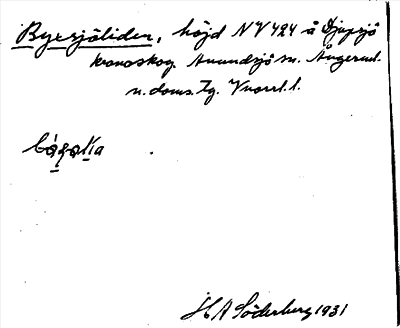 Byesjöliden, höjd NV 424 å Djupsjö
kronoskog. Anundsjö sn. Ångerml.
n. doms. Tg. Vnorrl. l.
H A Söderberg 1931